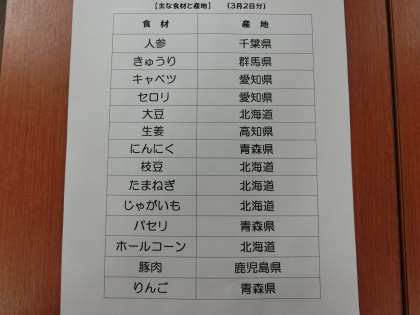 【主な食材と産地】 (3月2日分)
食 材 産 地
人参 千葉県
きゅうり 群馬県
キャベツ 愛知県
セロリ 愛知県
大豆 北海道
生姜 高知県
にんにく 青森県
枝豆 北海道
たまねぎ 北海道
じゃがいも 北海道
パセリ 青森県
ホールコーン 北海道
豚肉 鹿児島県
りんご 青森県